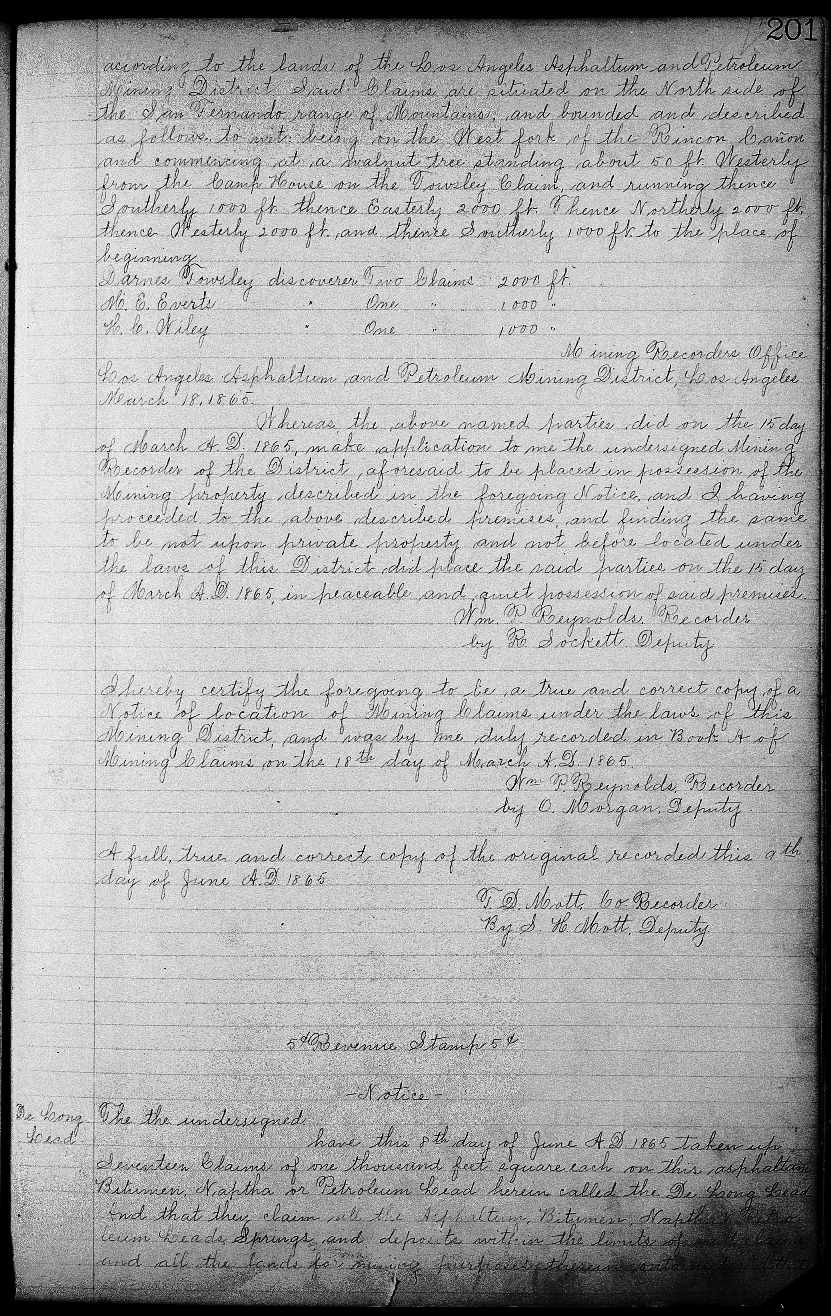 201
acording to the lands of the Los Angeles Asphaltum and Petroleum
Mining District Said Claims are situated on the North side of
the San Fernando range of Mountains, and bounded and described
as follows, to wit: being on the West fork of the Rincon Cañon
and commencing at a walnut tree standing about 50 ft. Westerly
from the Camp House on the Towsley Claim, and running thence
Southerly 1000 ft. thence Easterly 2000 ft. Thence Northerly 2000 ft.
thence Westerly 2000 ft. and thence Southerly 1000 ft. to the place of
beginning
Darnes Towsley discoverer Two Claims 2000 ft.
M. E. Everts " One " 1000 "
H. C. Wiley " One " 1000 "
Mining Recorders Office
Los Angeles Asphaltum and Petroleum Mining District, Los Angeles
March 18, 1865.
Whereas, the above named parties did on the 15 day
of March A.D. 1865, make application to me the undersigned Mining
Recorder of the District, aforesaid to be placed in possession of the
Mining property described in the foregoing Notice, and I having
proceeded to the above described premises, and finding the same
to be not upon private property and not before located under
the laws of this District did place the said parties on the 15 day
of March A.D. 1865, in peaceable and quiet possession of said premises.
Wm. P. Reynolds, Recorder
by R. Sockett Deputy
I hereby certify the foregoing to be a true and correct copy of a
Notice of location of Mining Claims under the laws of this
Mining District, and was by me duly recorded in Book A of
Mining Claims on the 18th day of March A.D. 1865.
Wm P. Reynolds, Recorder
by O. Morgan, Deputy.
A full, true and correct copy of the original recorded this 9th
day of June A.D. 1865
T. D. Mott, Co Recorder
By S. H. Mott, Deputy
5¢ Revenue Stamp 5¢
- Notice -
De Long
Lead
The the undersigned
have this 8th day of June A.D. 1865 taken up
Seventeen Claims of one thousand feet square each on this asphaltum
Bitumen, Naptha or Petroleum Lead herein called the De Long Lead
And that they claim all the Asphaltum, Bitumen, Naptha
leum Leads, Springs, and deposits within the limits of
and all the lands for mining purposes therein